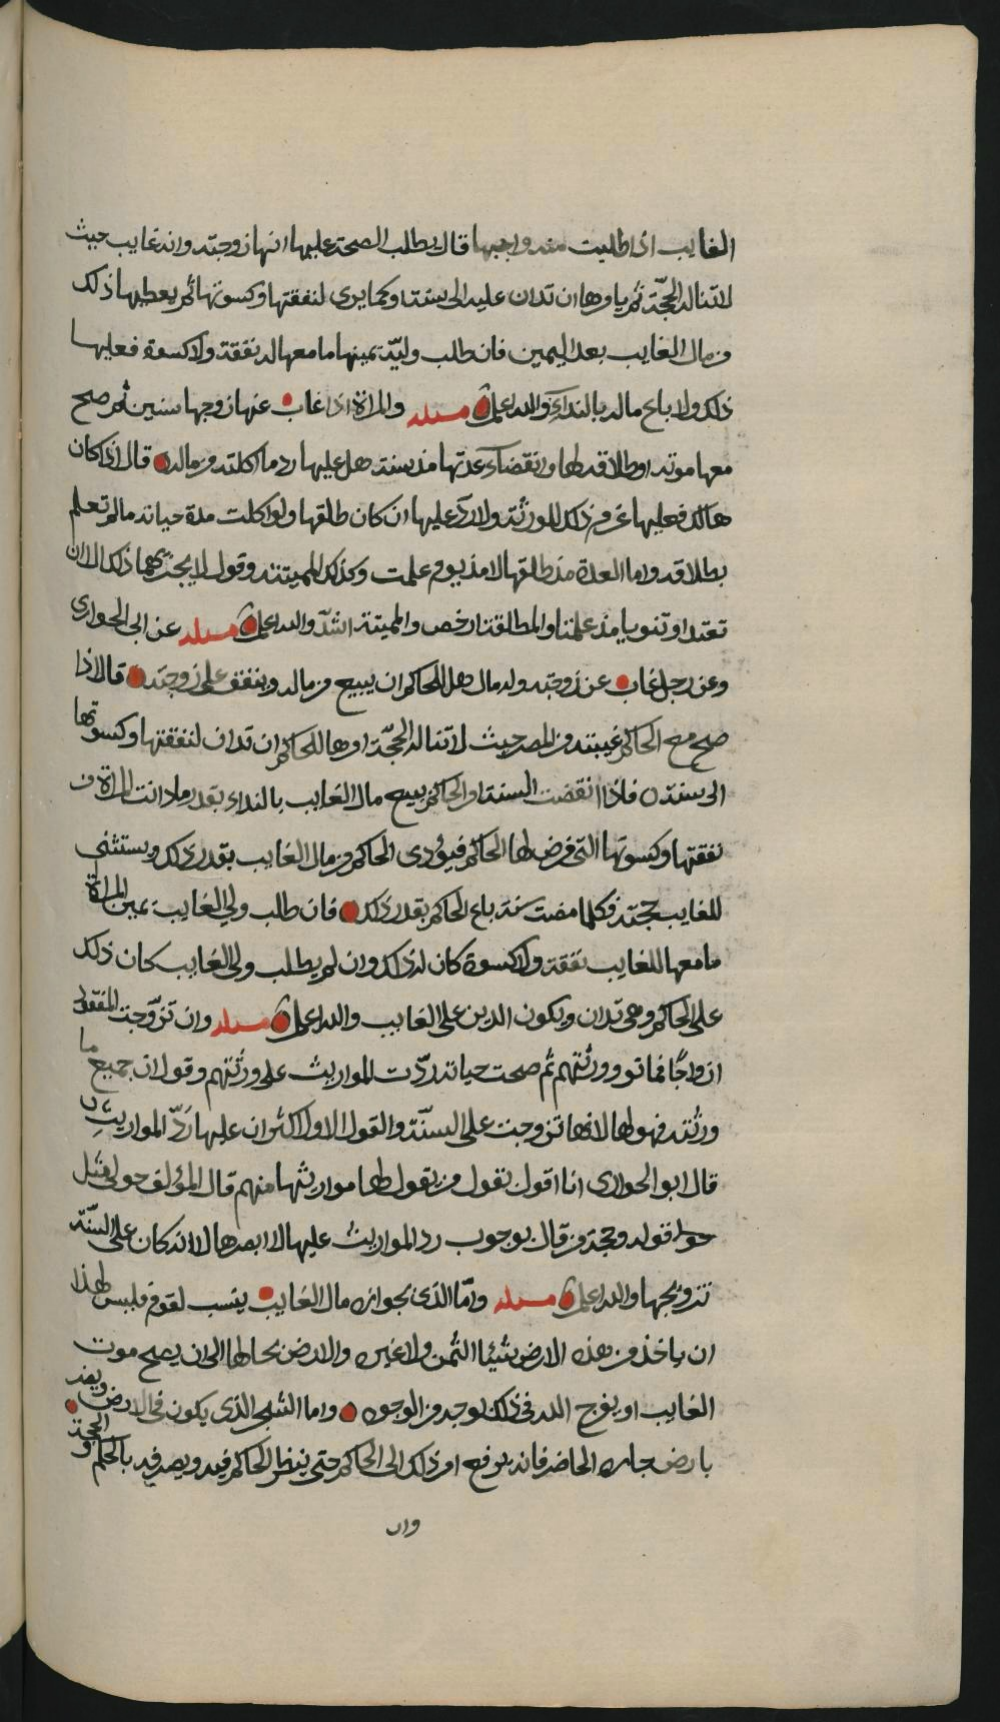 الغايب اذا طلبت منه واجبها قال يطلب الصحة عليها انها زوجته وانه غايب حيث
لا تناله الحجّة ثم يامرها ان تدان عليه الى سنة او كما يرى لنفقتها وكسوتها ثم يعطيها ذلك
من مال الغايب بعد اليمين فان طلب وليّه يمينها ما معها له نفقة ولا كسوة فعليها
ذلك ولا باع ماله بالنداء والله اعلم مسئله والمراة اذا غاب عنها زوجها سنين ثم صح
معها موته او طلاقه لها وانقضاء عدتها منذ سنة هل عليها رد ما اكلته من ماله قال اذا كان
هالك فعليها غرم ذلك للورثة ولا ردّ عليها ان كان طلقها ولو اكلت مدة حياته ما لم تعلم
بطلاقه واما العدة منذ طلقها لا منذ يوم علمت وكذلك المميتة وقول لا يجزيهما ذلك الا ان
تعتد او تنويا منذ علمتا والمطلقة ارخص والمميتة اشدّ والله اعلم مسئله عن ابى الحوارى
وعن رجل غاب عن زوجته وله مال هل للحاكم ان يبيع من ماله وينفق على زوجته قال اذا
صح مع الحاكم غيبته من المصر حيث لا تناله الحجّة امرها الحاكم ان تدان لنفقتها وكسوتها
الى سنة فاذا انقضت السنة امر الحاكم ببيع مال الغايب بالنداء بقدر ما دانت المراة من
نفقتها وكسوتها التى فرض لها الحاكم فيؤدى الحاكم من مال الغايب بقدر ذلك ويستثنى
للغايب حجته فكلما مضت سنة باع الحاكم بقدر ذلك فان طلب ولي الغايب يمين المراة
ما معها للغايب نفقة ولا كسوة كان له ذلك وان لم يطلب ولي الغايب كان ذلك
على الحاكم وهى تدان ويكون الدين على الغايب والله اعلم مسئله وان تزوّجت المفقود
ازواجًا فماتوا وورثتهم ثم صحت حياته ردّت المواريث على ورثتهم وقول ان جميع ما
ورثته فهو لها لانها تزوجت على السنّة والقول الاول اكثر ان عليها ردّ المواريث
قال ابو الحوارى انا اقول بقول من يقول لها مواريثها منهم قال المؤلف
قوله وحجة من قال بوجوب رد المواريث عليها لا ابصرها لا انه كان على السنّة
تزويجها والله اعلم مسئله وامّا الذى بجواره مال الغايب ينسب لقوم فليس لهذا
ان ياخذ من هذه الارض شيئا التمن ولا غيره والارض بحالها الى ان يصح موت
الغايب او يفرج الله فى ذلك بوجه من الوجوه واما الشجر الذى يكون فى الارض ويضر
بارض جاره الحاضر فانه يرفع امر ذلك الى الحاكم حتى ينظر الحاكم فيه ويصرفه بالحكم والحجة
وان